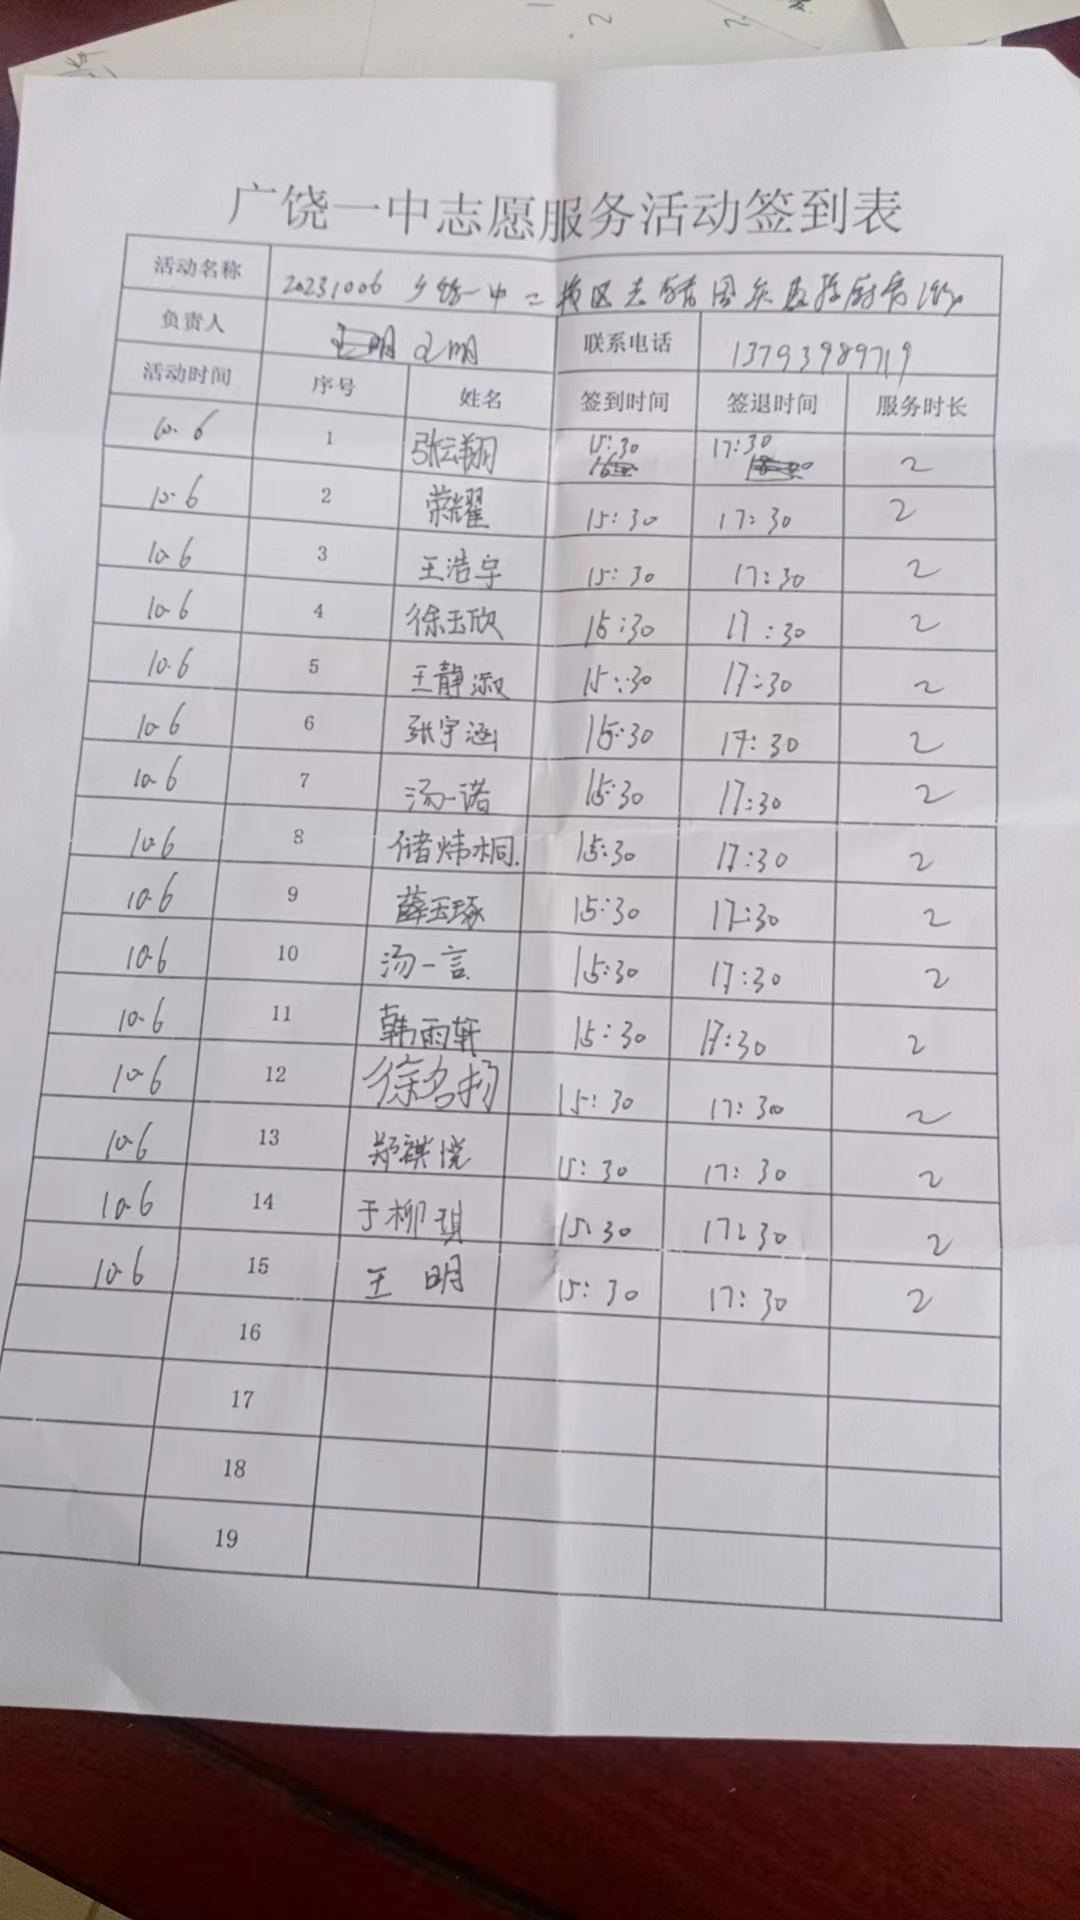 广饶一中志愿服务活动签到表
活动名称 20231006 广饶一中二校区志愿
负责人 王明 联系电话 13793989719
活动时间 序号 姓名 签到时间 签退时间 服务时长
10.6 1 张云翔 15:30 17:30 2
10.6 2 荣耀 15:30 17:30 2
10.6 3 王浩宇 15:30 17:30 2
10.6 4 徐玉欣 15:30 17:30 2
10.6 5 王静淑 15:30 17:30 2
10.6 6 张宇涵 15:30 17:30 2
10.6 7 汤一诺 15:30 17:30 2
10.6 8 储炜桐. 15:30 17:30 2
10.6 9 薛玉琢 15:30 17:30 2
10.6 10 汤一言 15:30 17:30 2
10.6 11 韩雨轩 15:30 17:30 2
10.6 12 徐名扬 15:30 17:30 2
10.6 13 郑祺悦 15:30 17:30 2
10.6 14 于柳琪 15:30 17:30 2
10.6 15 王明 15:30 17:30 2
16
17
18
19